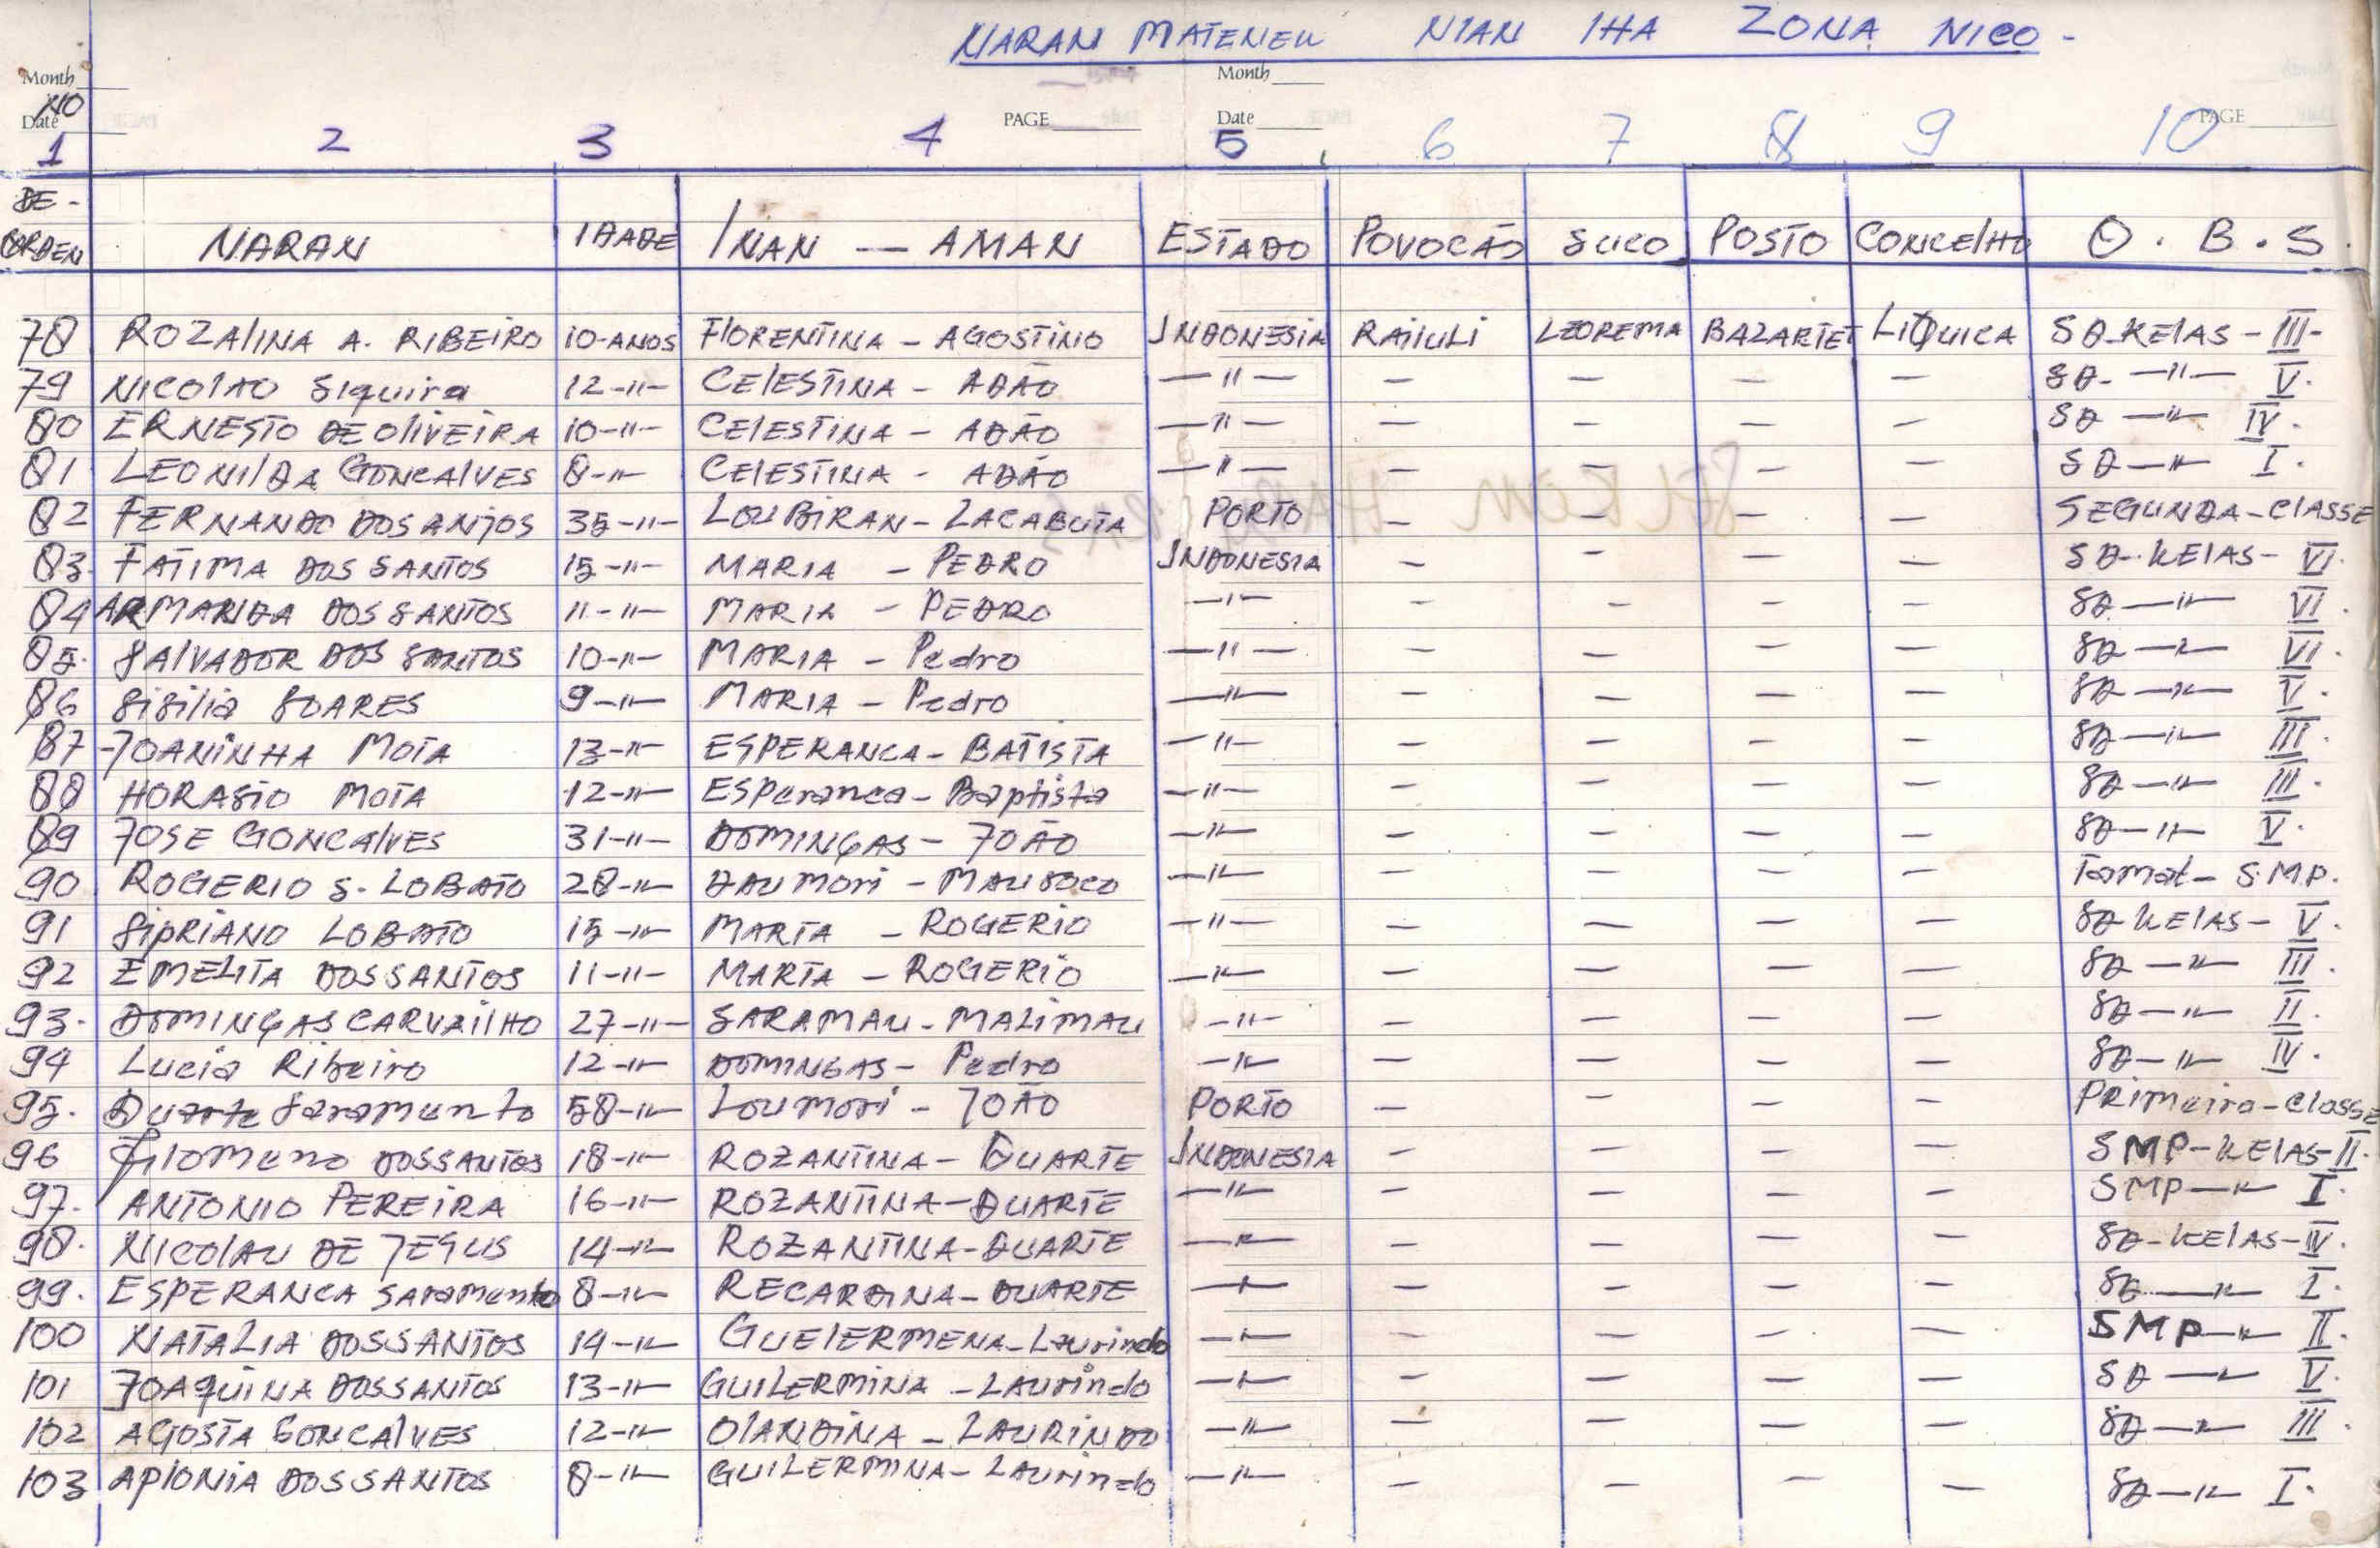 NARAN MATENEK NIAN IHA ZONA NICO -
Month Month
NO
Date PAGE Date PAGE
1 2 3 4 5 6 7 8 9 10
DE -
ORDEN NARAN IDADE INAN — AMAN ESTADO POVOCÃO SUCO POSTO CONCELHO O. B. S.
78 ROZALINA A. RIBEIRO 10-ANOS FLORENTINA - AGOSTINO INDONESIA RAIULI LEOREMA BAZARTET LIQUICA SD-KELAS - III-
79 NICOLAO Siquira 12-"- CELESTINA - ADÃO —"— — — — — SD- —"— V.
80 ERNESTO DE OLIVEIRA 10-"- CELESTINA - ADÃO —"— — — — — SD —"— IV.
81 LEONILDA GONCALVES 8-"- CELESTINA - ADÃO —"— — — — — SD —"— I.
82 FERNANDO DOS ANJOS 35-"- LOUBIRAN - LACABUTA PORTO — — — — SEGUNDA-CLASSE
83. FATIMA DOS SANTOS 15-"- MARIA - PEDRO INDONESIA — — — — SD-KELAS- VI.
84 ARMANDA DOS SANTOS 11-"- MARIA - PEDRO —"— — — — — SD —"— VI.
85. SALVADOR DOS SANTOS 10-"- MARIA - Pedro —"— — — — — SD —"— VI.
86 Sisilia SOARES 9-"- MARIA - Pedro —"— — — — — SD —"— V.
87 JOANINHA MOTA 13-"- ESPERANCA - BATISTA —"— — — — — SD —"— III.
88 HORASIO MOTA 12-"- ESPeranca - Baptista —"— — — — — SD —"— III.
89 JOSE GONCALVES 31-"- DOMINGAS - JOÃO —"— — — — — SD —"— V.
90 ROGERIO S. LOBATO 28-"- DAUMORI - MAUSOCO —"— — — — — Tamat - S.M.P.
91 SIPRIANO LOBATO 15-"- MARTA - ROGERIO —"— — — — — SD KELAS - V.
92 EMELITA DOS SANTOS 11-"- MARTA - ROGERIO —"— — — — — SD —"— III.
93. DOMINGAS CARVAILHO 27-"- SARAMAU - MALIMAU —"— — — — — SD —"— II.
94 Lucia Ribeiro 12-"- DOMINGAS - Pedro —"— — — — — SD —"— IV.
95. Duarte Saramento 58-"- LOUMORI - JOÃO PORTO — — — — PRIMeira-classe
96 Filomeno DOS SANTOS 18-"- ROZANTINA - DUARTE INDONESIA — — — — SMP-KELAS-II.
97. ANTONIO PEREIRA 16-"- ROZANTINA - DUARTE —"— — — — — SMP —"— I.
98. NICOLAU DE JESUS 14-"- ROZANTINA - DUARTE —"— — — — — SD-KELAS-IV.
99. ESPERANCA saramento 8-"- RECARDINA - DUARTE —"— — — — — SD —"— I.
100 NATALIA DOS SANTOS 14-"- GUELERMENA - Laurindo —"— — — — — SMP —"— II.
101 JOAQUINA DOS SANTOS 13-"- GUILERMINA - LAURindo —"— — — — — SD —"— V.
102 AGOSTA GONCALVES 12-"- OLANDINA - LAURINDO —"— — — — — SD —"— III.
103 APLONIA DOS SANTOS 8-"- GUILERMINA - Laurindo —"— — — — — SD —"— I.